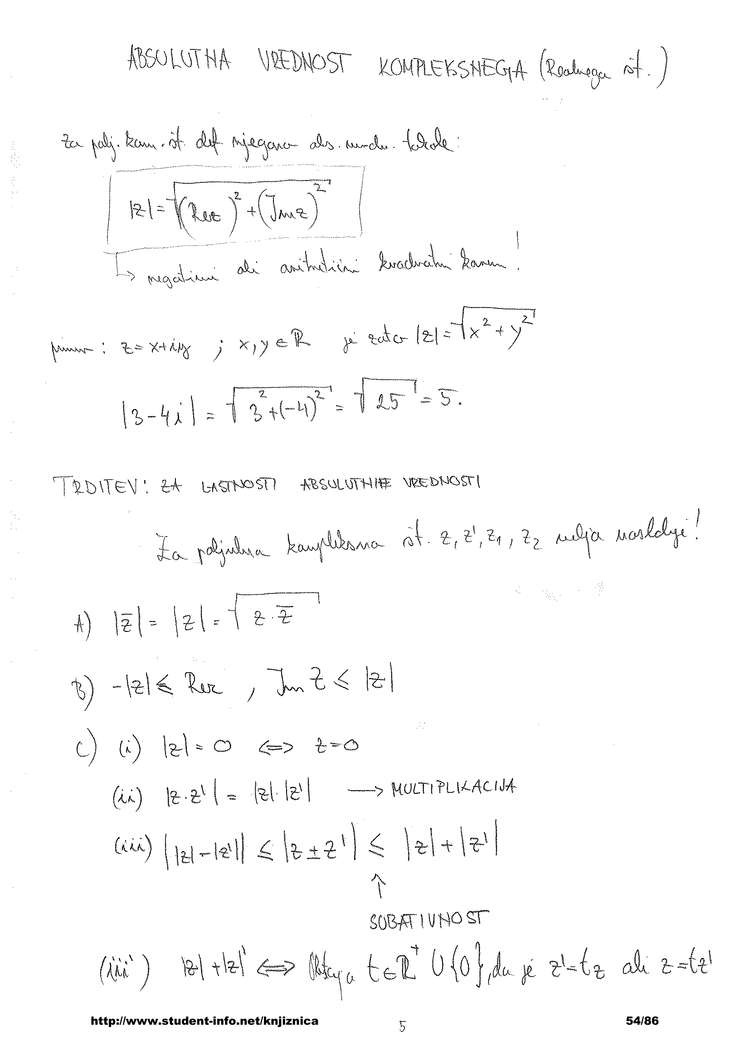 ABSOLUTNA VREDNOST KOMPLEKSNEGA (Realnega št.)
Za polj. kom. št. def njegovo abs. vredn. takole:
|z| = √((Re z)² + (Im z)²)
↳ negativni ali aritmetični kvadratni koren!
primer: z = x+iy ; x, y ∈ ℝ je zato |z| = √(x² + y²)
|3-4i| = √(3² + (-4)²) = √25 = 5.
TRDITEV: ZA LASTNOSTI ABSOLUTNE VREDNOSTI
Za poljubna kompleksna št. z, z', z₁, z₂ velja naslednje!
A) |z̄| = |z| = √(z·z̄)
B) -|z| ≤ Re z , Im z ≤ |z|
C) (i) |z| = 0 ⟺ z=0
(ii) |z·z'| = |z|·|z'| → MULTIPLIKACIJA
(iii) ||z|-|z'|| ≤ |z ± z'| ≤ |z| + |z'|
↑
SUBATIVNOST
(iii') |z| + |z|' ⟺ t ∈ ℝ⁺ ∪ {0}, da je z'=tz ali z=tz'
http://www.student-info.net/knjiznica 5 54/86